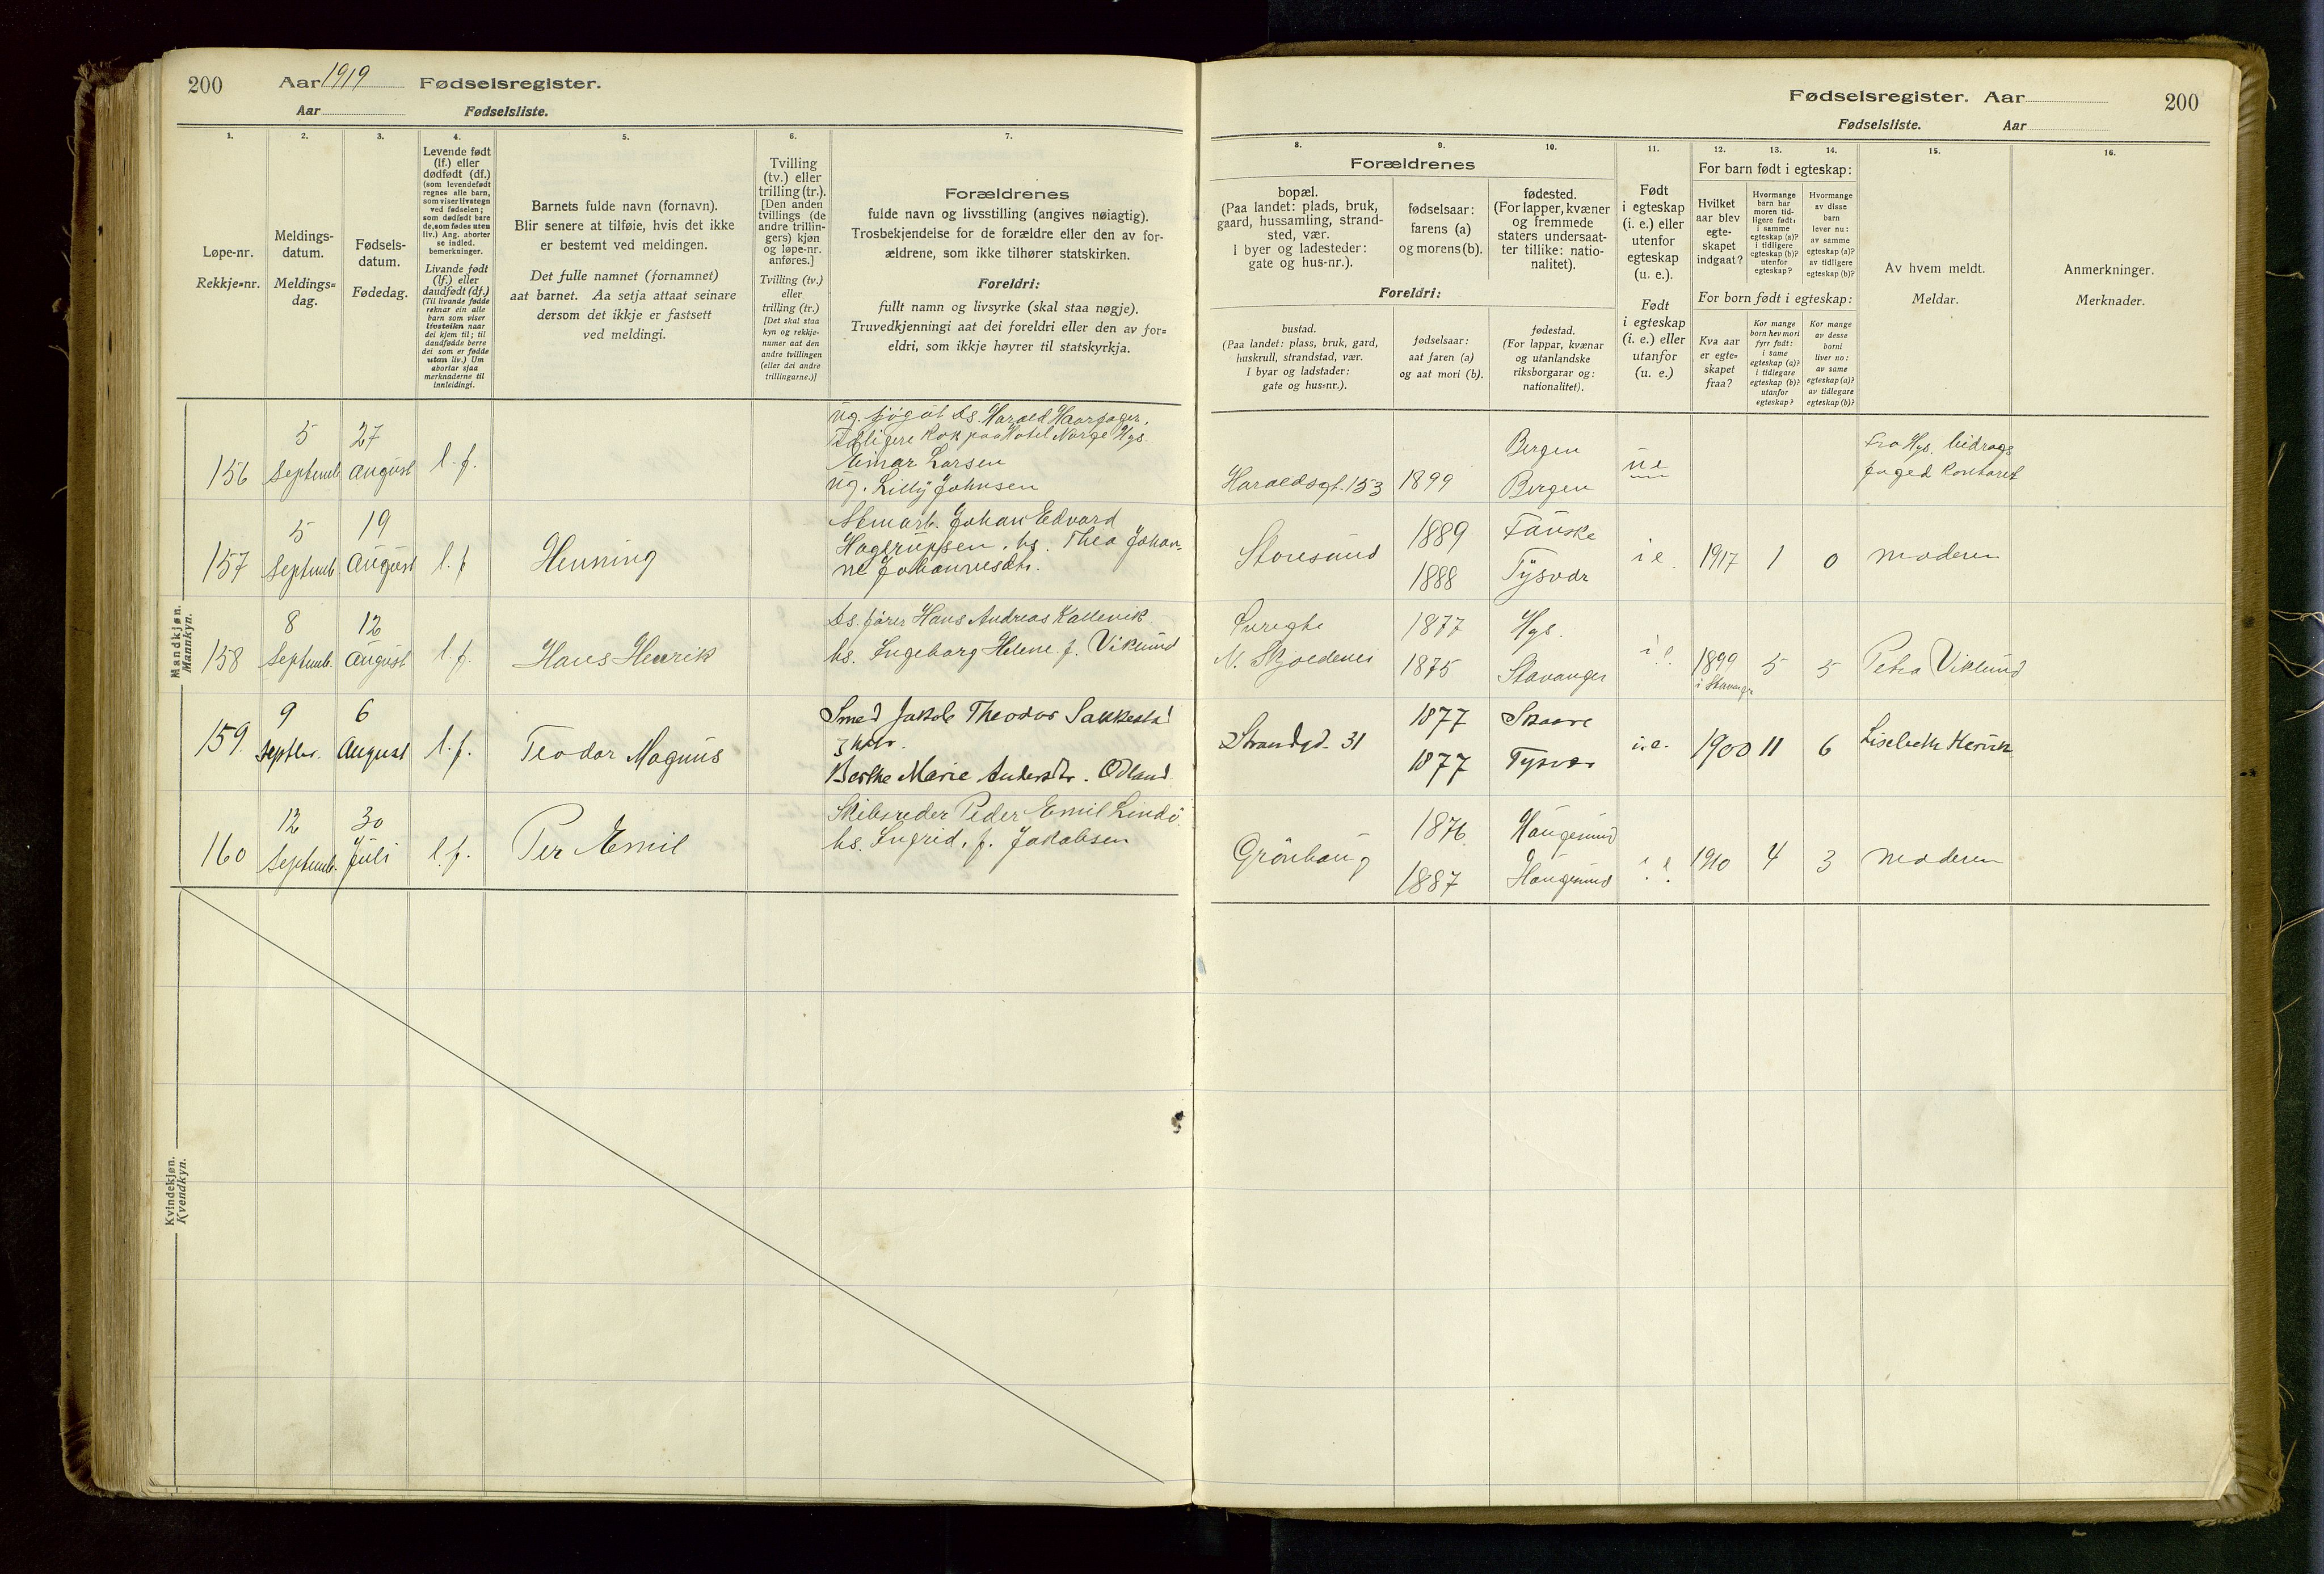 200 Aar 1919 Fødselsregister.
Aar Fødselsliste.
1. 2. 3. 4. 5. 6. 7.
Løpe-nr.
Rekkje=nr.
Meldings-
datum.
Meldings=
dag.
Fødsels-
datum.
Fødedag.
Levende født
(lf.) eller
dødfødt (df.)
(som levendefødt
regnes alle barn,
som viser livstegn
ved fødselen;
som dødfødt bare
de, som fødes uten
liv.) Ang. aborter
se indled.
bemerkninger.
Livande født
(lf.) eller
daudfødt (df.)
(Til livande fødde
reknar ein alle
barn som viser
livsteikn naar
dei kjem til; til
daudfødde berre
dei som er fødde
utan liv.) Um
abortar sjaa
merknaderne til
innleidingi.
Barnets fulde navn (fornavn).
Blir senere at tilføie, hvis det ikke
er bestemt ved meldingen.
Det fulle namnet (fornamnet)
aat barnet. Aa setja attaat seinare
dersom det ikkje er fastsett
ved meldingi.
Tvilling
(tv.) eller
trilling (tr.).
[Den anden
tvillings (de
andre trillin-
gers) kjøn
og løpe-nr.
anføres.]
Tvilling (tv.)
eller
trilling (tr.)
[Det skal staa
kyn og rekkje-
numer aat den
andre tvillingen
(eller dei andre
trillingarne.)]
Forældrenes
fulde navn og livsstilling (angives nøiagtig).
Trosbekjendelse for de forældre eller den av for-
ældrene, som ikke tilhører statskirken.
Foreldri:
fullt namn og livsyrke (skal staa nøgje).
Truvedkjenningi aat dei foreldri eller den av for=
eldri, som ikkje høyrer til statskyrkja.
Mandkjøn.
Mannkyn.
156 5 Septemb. 27 August l. f.
Ug. fyrbøt Ds. Harald Haarfager,
tidligere Kok paa Hotel Norge Hgs.
Einar Larsen
Ug. Lilly Johnsen
157 5 Septemb 19 August l. f. Henning
Johan Edvard
Hagerupsen, hs. Thea Johan-
ne Johannesdtr.
158 8 Septemb. 12 August l. f. Hans Henrik
Ds. fører Hans Andreas Kallevik
hs. Ingeborg Helene f. Viklund
159. 9 Septbr. 6 August l. f. Teodor Magnus
Smed Jakob Theodor Sakkestad
Berthe Marie Andersdtr. Ødland
160 12 Septemb. 30 Juli l. f. Per Emil
Skibsreder Peder Emil Lindø
hs. Ingrid, f. Jakobsen
Kvindekjøn.
Kvendkyn.
Fødselsregister. Aar 200
Fødselsliste. Aar
8. 9. 10. 11. 12. 13. 14. 15. 16.
Forældrenes
bopæl.
(Paa landet: plads, bruk,
gaard, hussamling, strand-
sted, vær.
I byer og ladesteder:
gate og hus-nr.).
fødselsaar:
farens (a)
og morens (b).
fødested.
(For lapper, kvæner
og fremmede
staters undersaat-
ter tillike: natio-
nalitet).
Foreldri:
bustad.
(Paa landet: plass, bruk, gard,
huskrull, strandstad, vær.
I byar og ladstader:
gate og hus=nr.).
fødselsaar:
aat faren (a)
og aat mori (b).
fødestad.
(For lappar, kvænar
og utanlandske
riksborgarar og:
nationalitet).
Født
i egteskap
(i. e.) eller
utenfor
egteskap
(u. e.).
Født
i egteskap
(i. e.) eller
utanfor
(u. e.)
For barn født i egteskap:
Hvilket
aar blev
egte-
skapet
indgaat?
Hvormange
barn har
moren tid-
ligere født:
i samme
egteskap (a)?
i tidligere
egteskap (b)?
utenfor
egteskap?
Hvormange
av disse
barn
lever nu:
av samme
egteskap (a)?
av tidligere
egteskap (b)?
For born født i egteskap:
Kva aar
er egte=
skapet
fraa?
Kor mange
born hev mori
fyrr født:
i same
egteskap (a)?
i tidlegare
egteskap (b)?
utanfor
egteskap?
Kor mange
av desse
borni
liver no:
av same
egteskap (a)?
av tidlegare
egteskap (b)?
Av hvem meldt.
Meldar.
Anmerkninger.
Merknader.
Bergen
Haraldsgt. 153 1899 Bergen u e
Fra Hgs. bidrags
foged Kontoret
1889 Fauske
Storesund i e. 1917 1 0 Moderen
1888 Tysvær
1877 Hgs.
N. Skjoldenes 1875 Stavanger i. e. 1899 i Stavanger 5 5 Petra Viklund
1877 Skaare
Strandgd. 31 i. e. 1900 11 6 Lisebeth
1877 Tysvær
1876. Haugesund
Grønhaug i. e. 1910 4 3 Moderen
1887 Haugesund